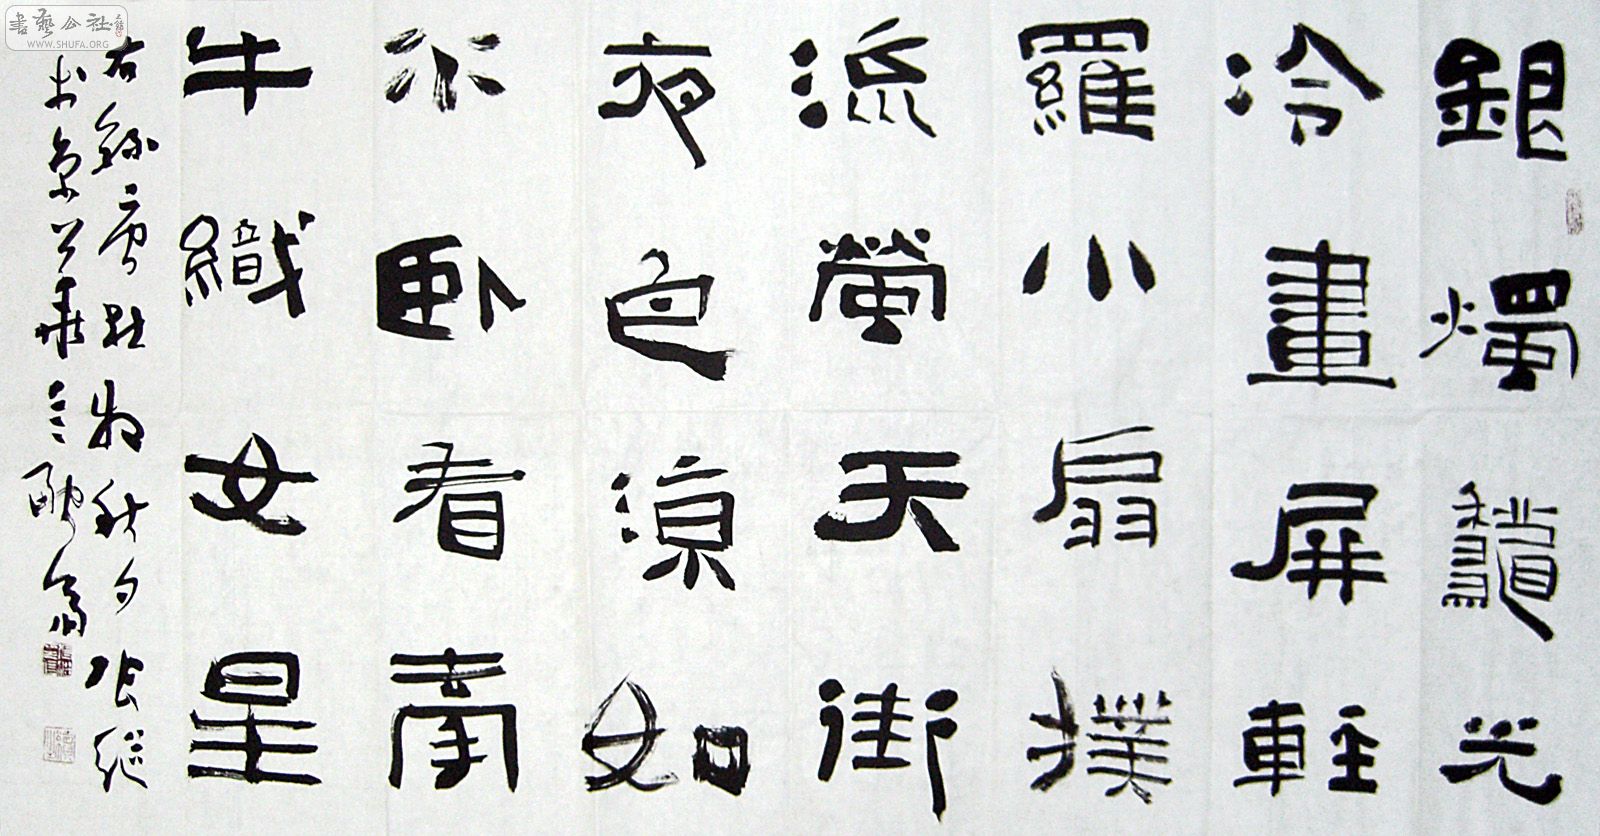 銀燭龝光
冷畫屏輕
羅小扇撲
流螢天街
夜色涼如
水卧看牽
牛織女星
右錄唐杜牧秋夕張繼
書藝公社
WWW.SHUFA.ORG